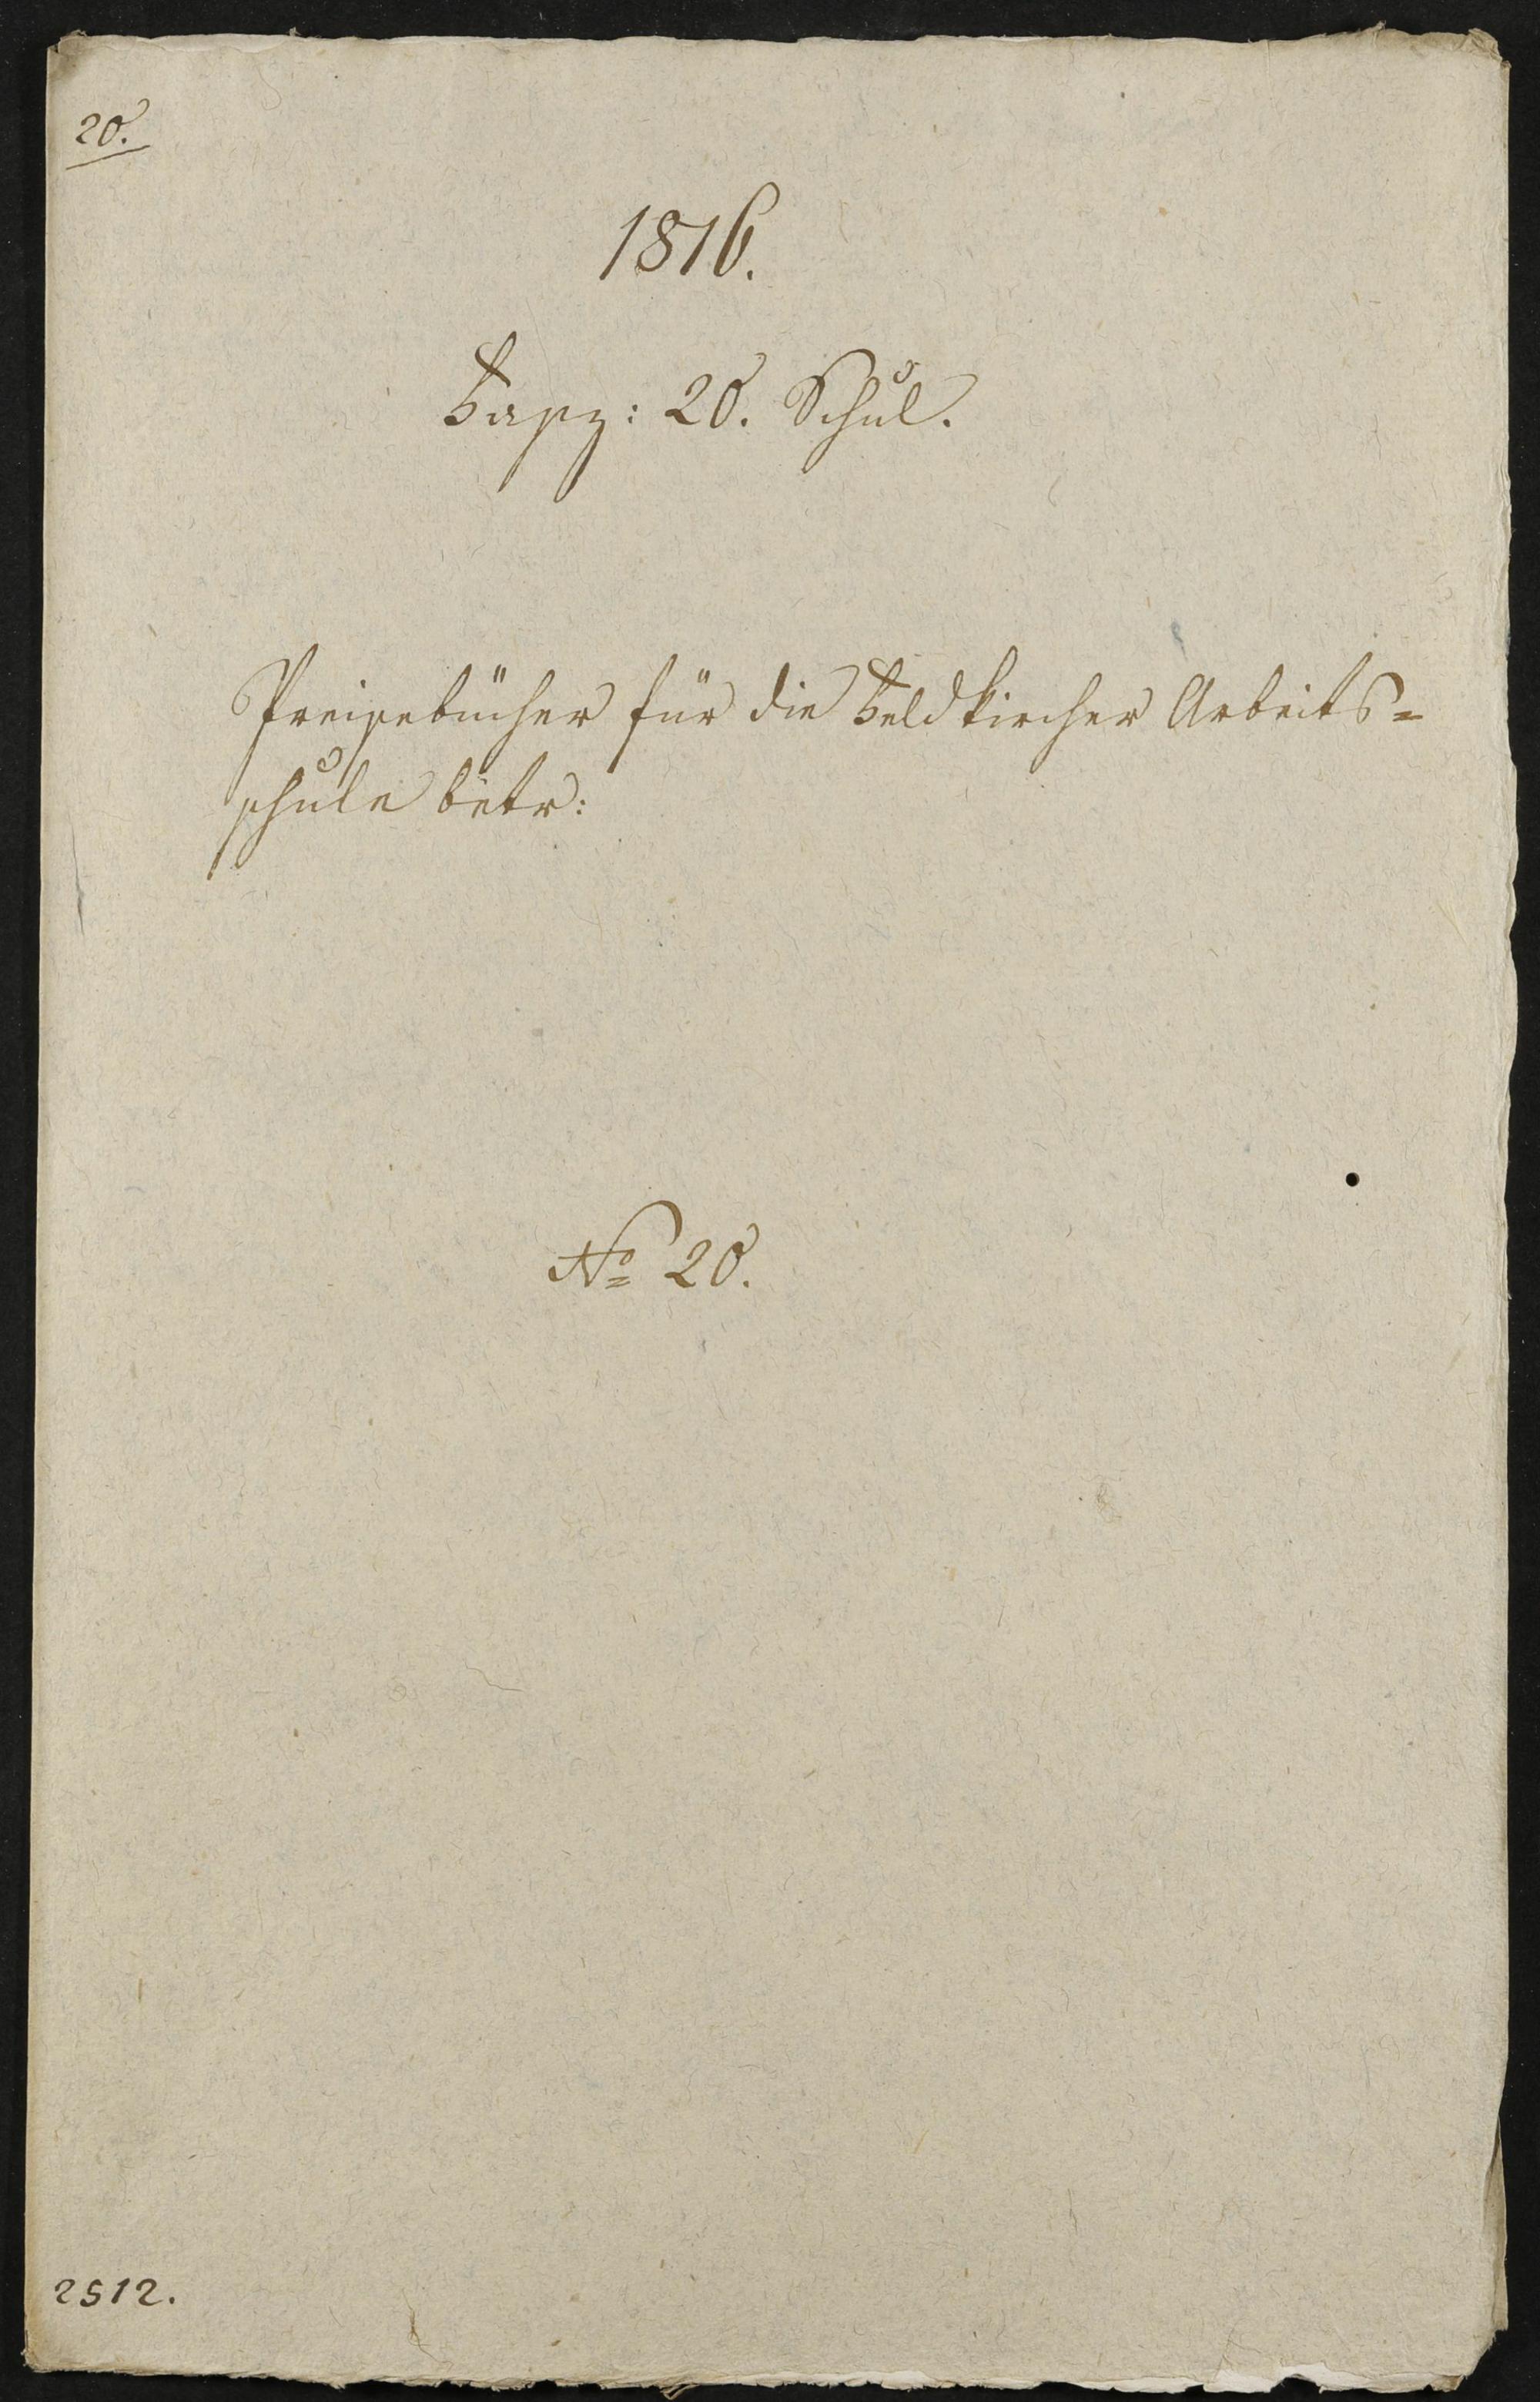 20.
1816.
Fasz: 20. Schul.
Preisebücher für die Feldkircher Arbeits=
schule betr:
No 20.
2512.